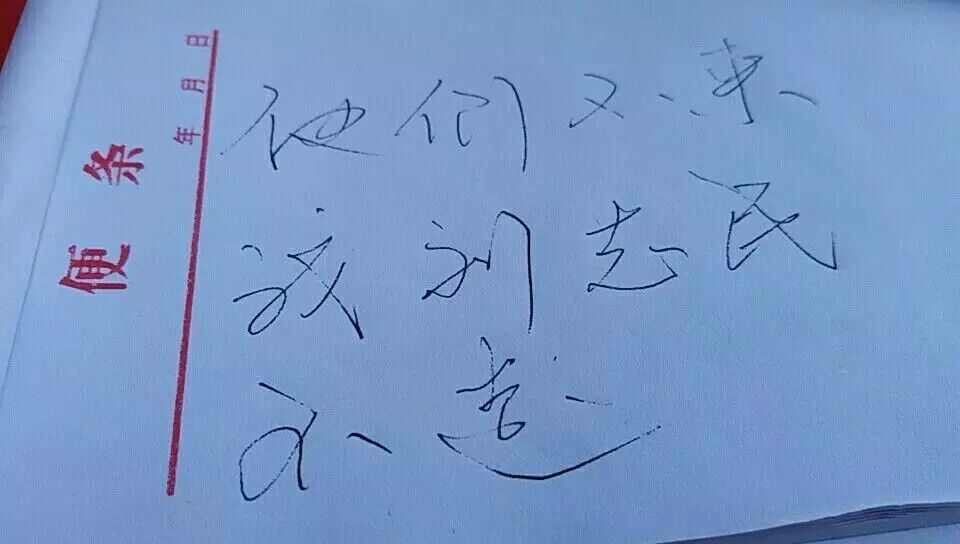 便条
年 月 日
他们不来
我刘志民
不走